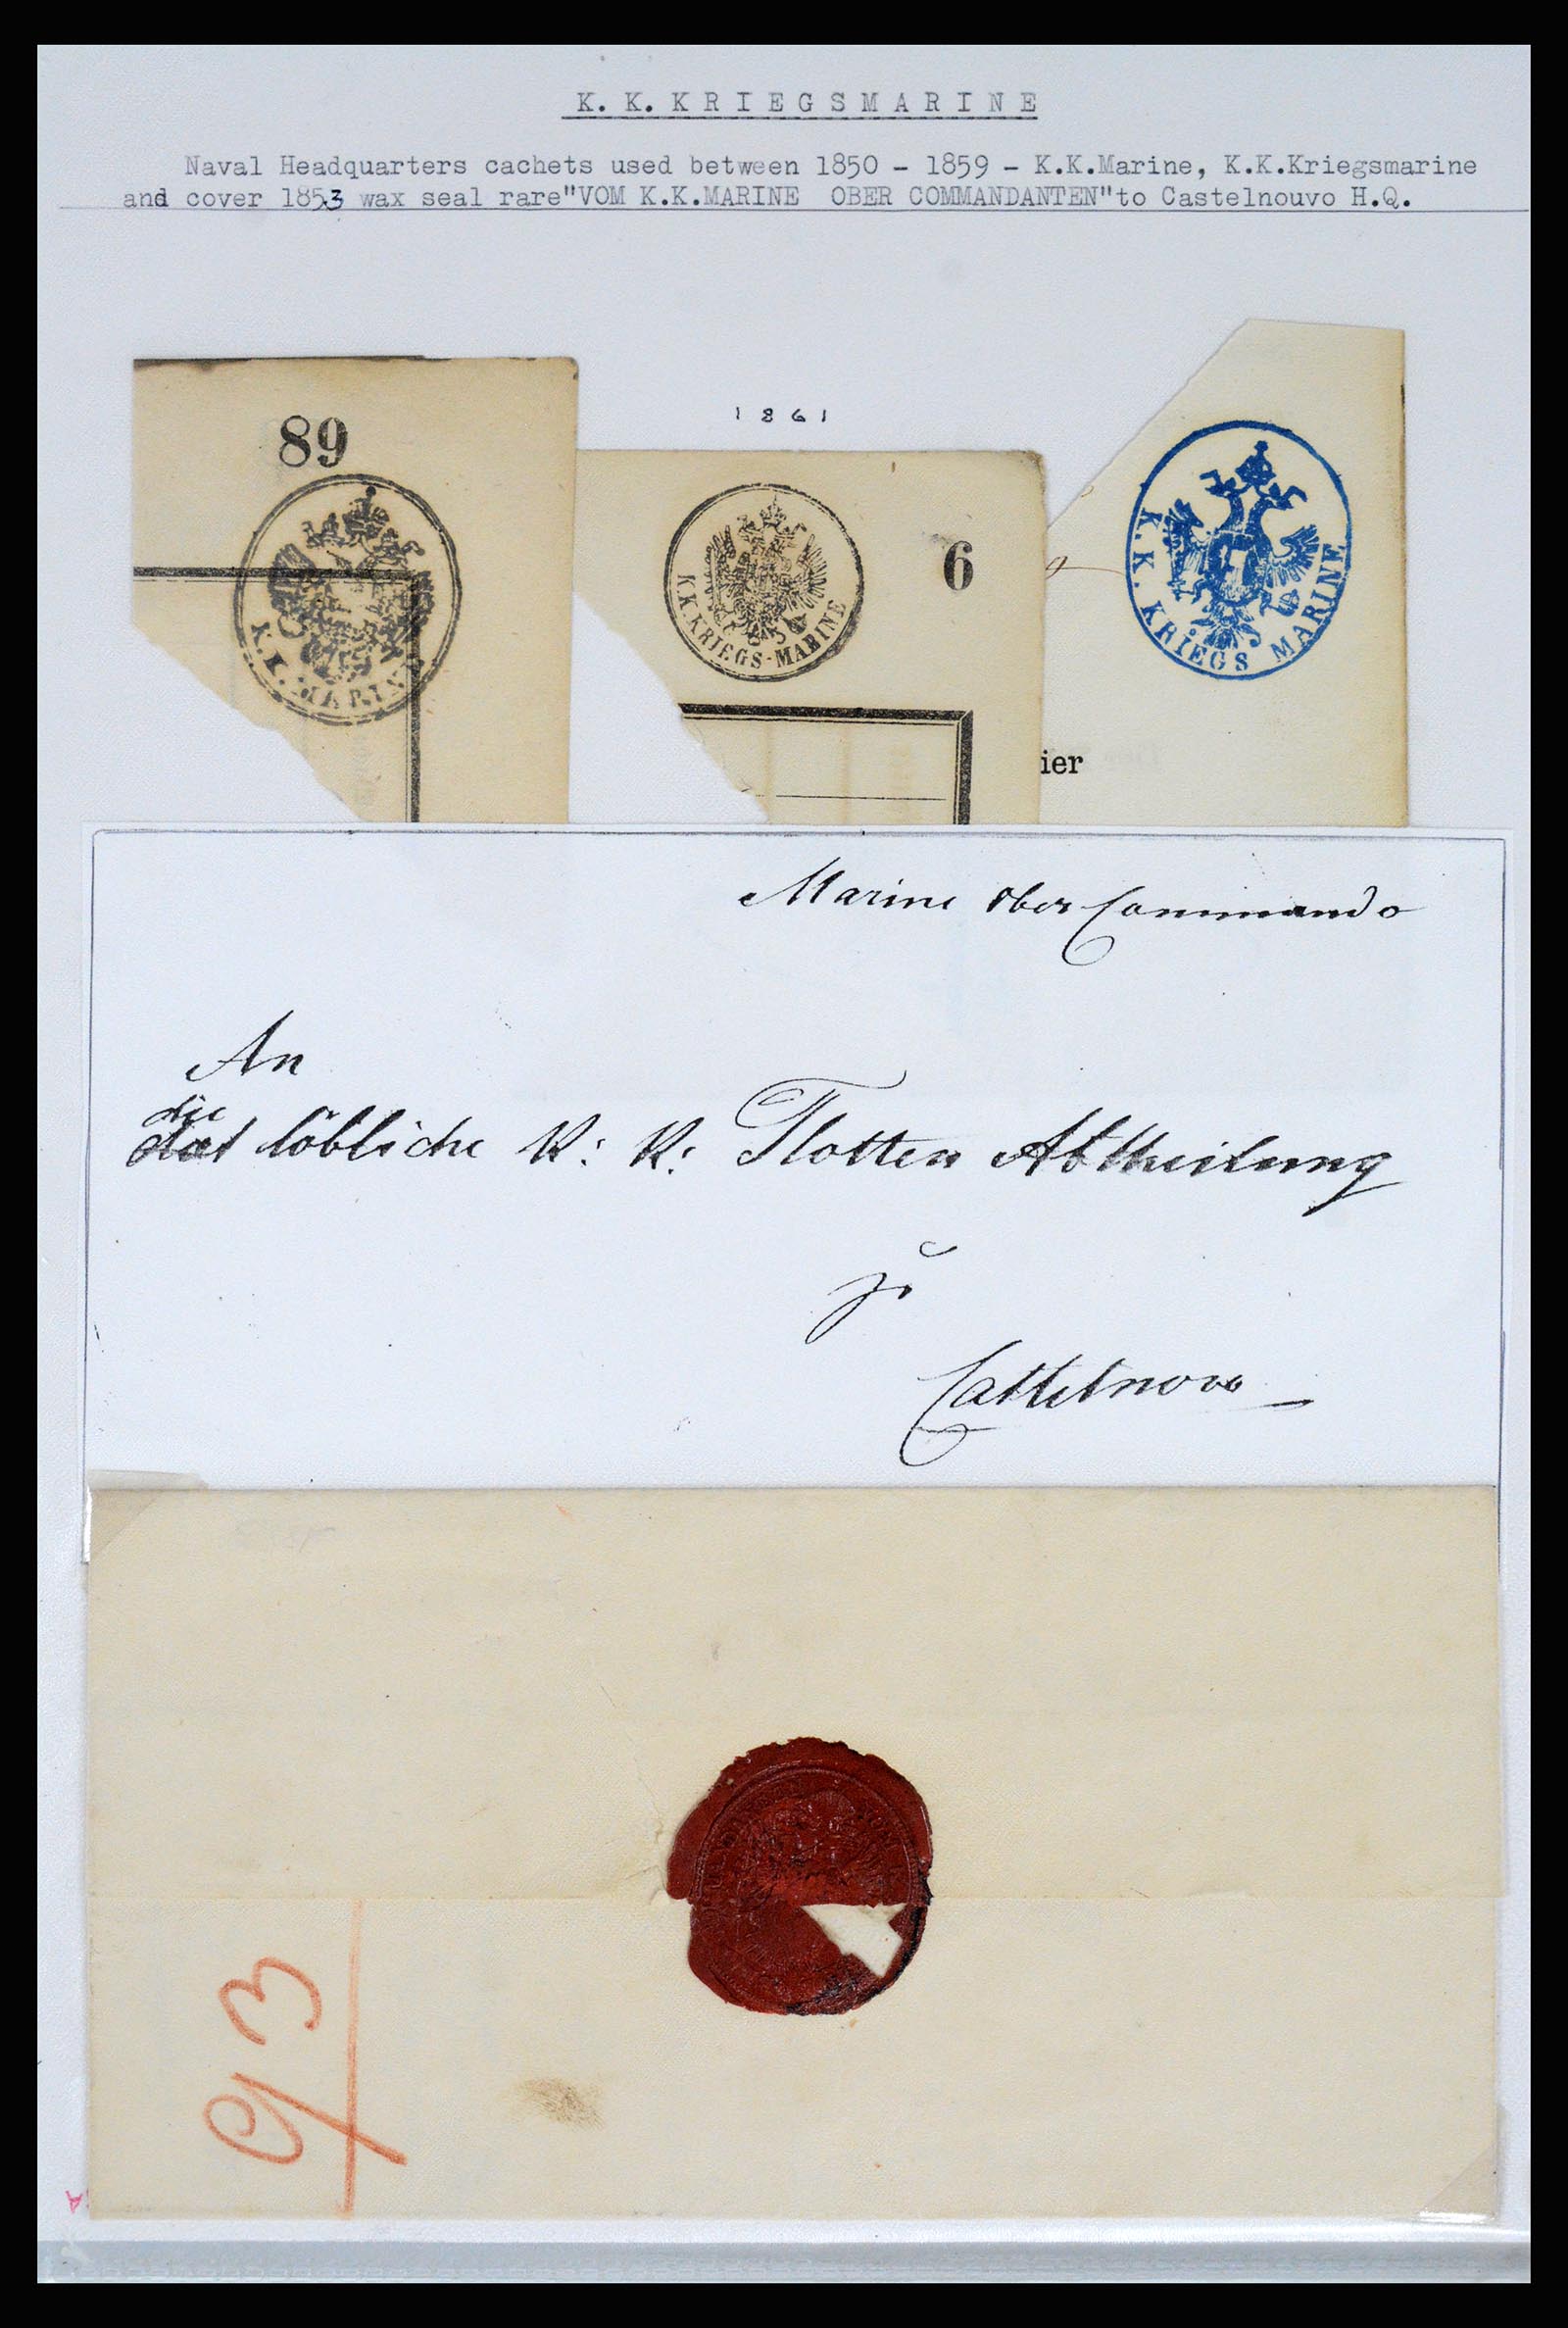 K. K. KRIEGSMARINE
Naval Headquarters cachets used between 1850 - 1859 - K.K.Marine, K.K.Kriegsmarine
and cover 1853 wax seal rare"VOM K.K.MARINE OBER COMMANDANTEN"to Castelnouvo H.Q.
1861
89
K.K. MARINE
K.K.KRIEGS-MARINE
6
K. K. KRIEGS MARINE
ier
Marine Ober Commando
An
die
löbliche K: K: Flotten Abtheilung
zu
Castelnovo
93